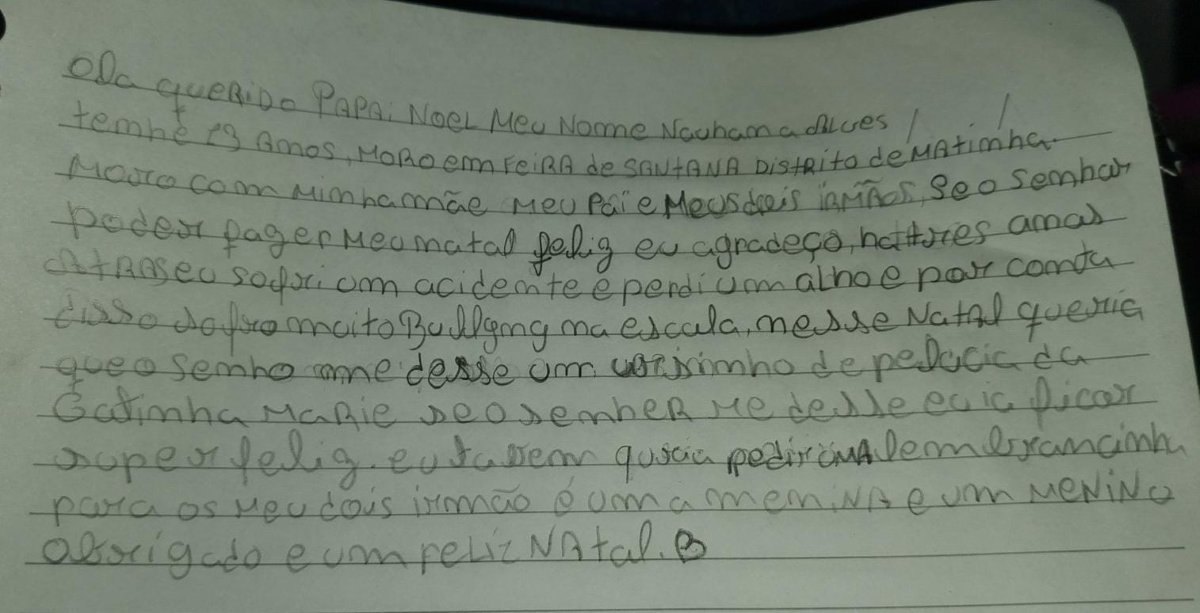 Ola queRiDo PAPAi NoeL Meu Nome Nauhamad Alves
temhe 13 Amos, MoRo em FeiRA de SANtANA DistRito de MAtimha.
Moro com Minha mãe Meu Pai e Meus dois iRMÃos, Se o Semhor
Poder fazer Meu matal feliz eu agradeço, há tres amos
AtRAs eu sofri um acidemte e perdi um olho e por conta
disso sofro muito Bullying ma escola, messe NatAl queria
que o Semho me desse um ursimho de pelucia da
Gatimha MaRie se o semheR Me desse eu ia ficar
super feliz. eu tabem queia pedir uMA lembramcinha
para os Meu dois irmão é uma memiNA e um MeNiNo
obrigado e um feliz NAtal.